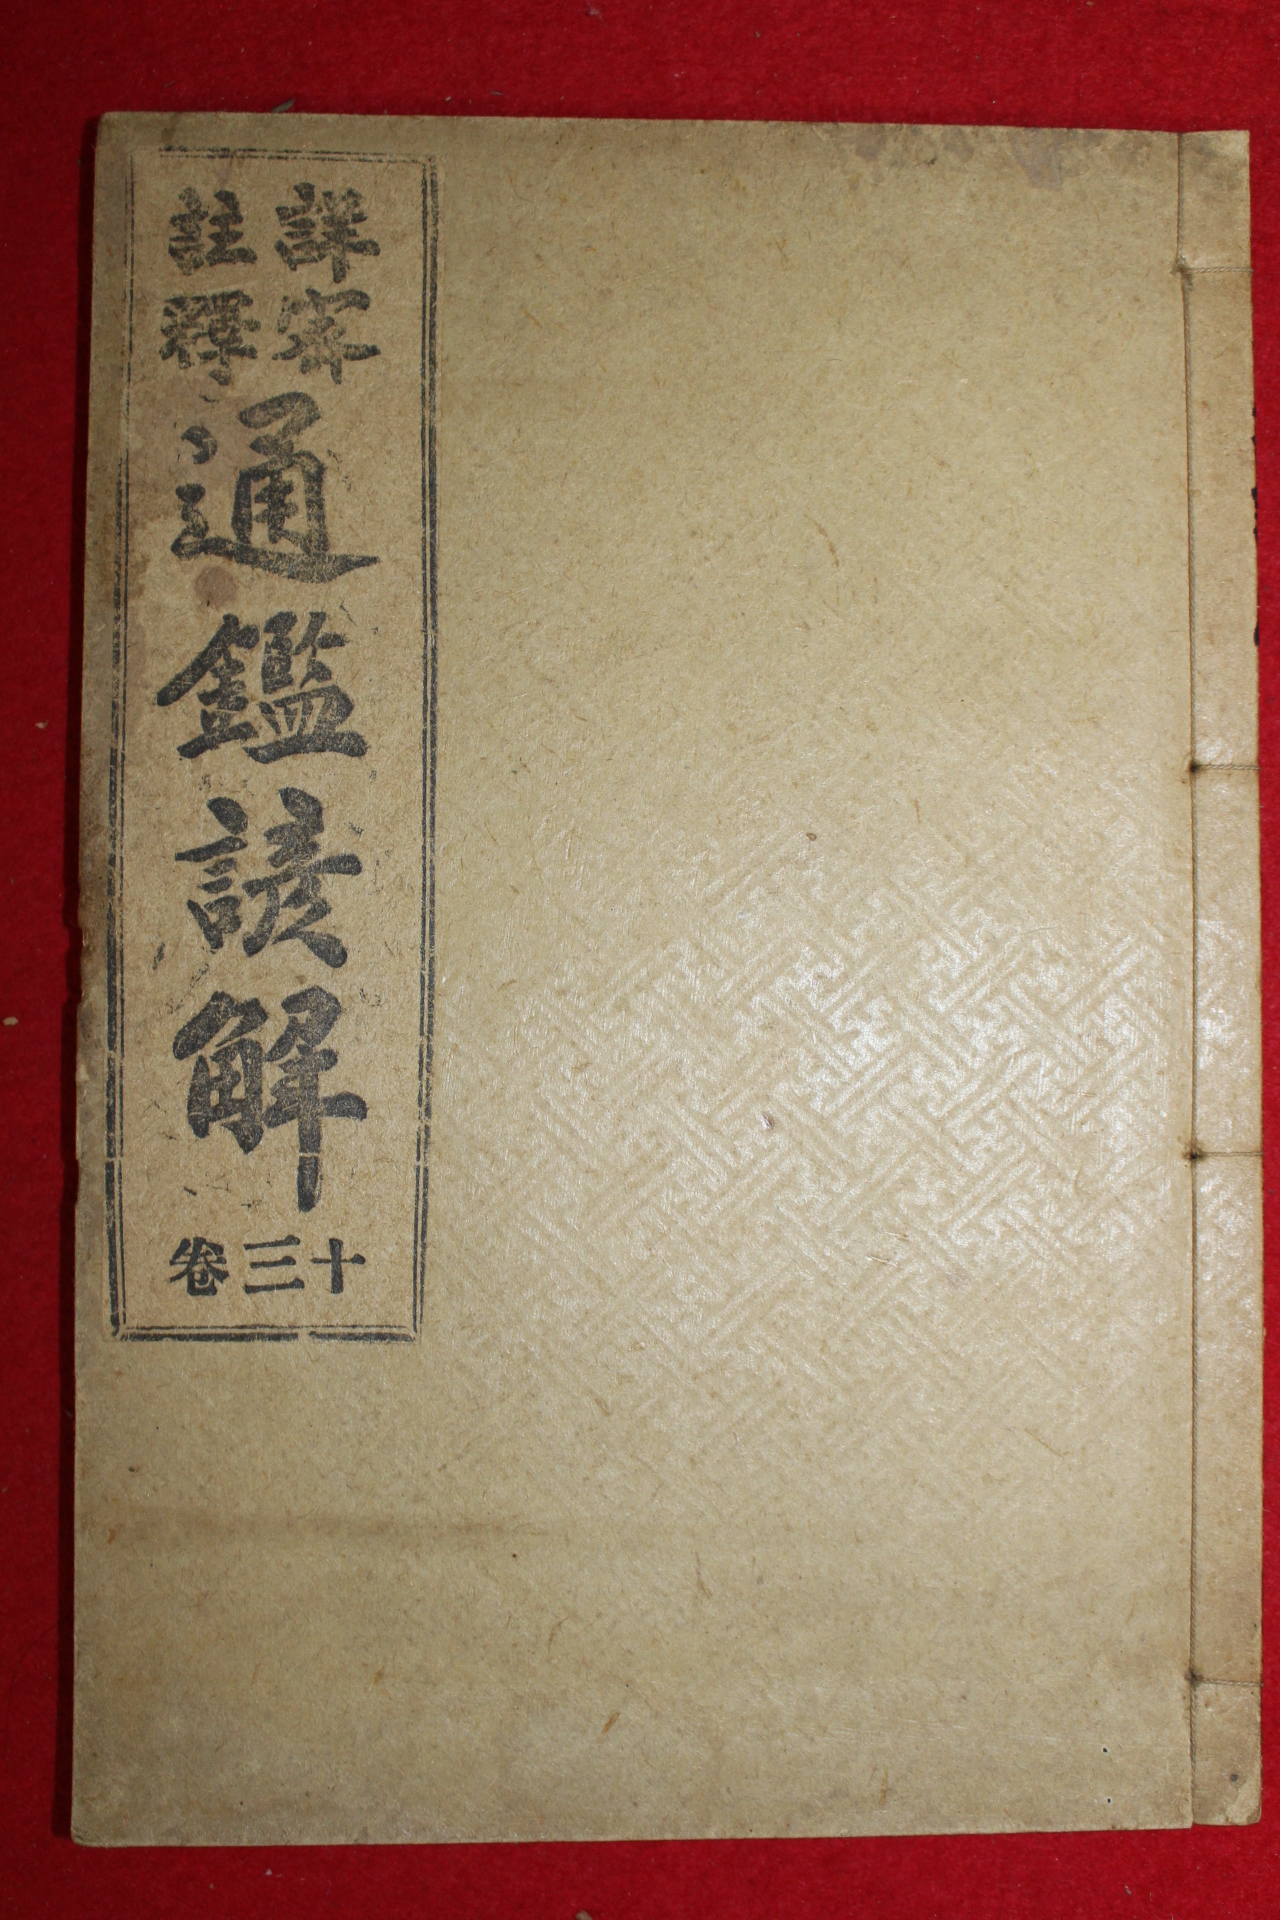 詳密
註釋
通鑑諺解
十三卷